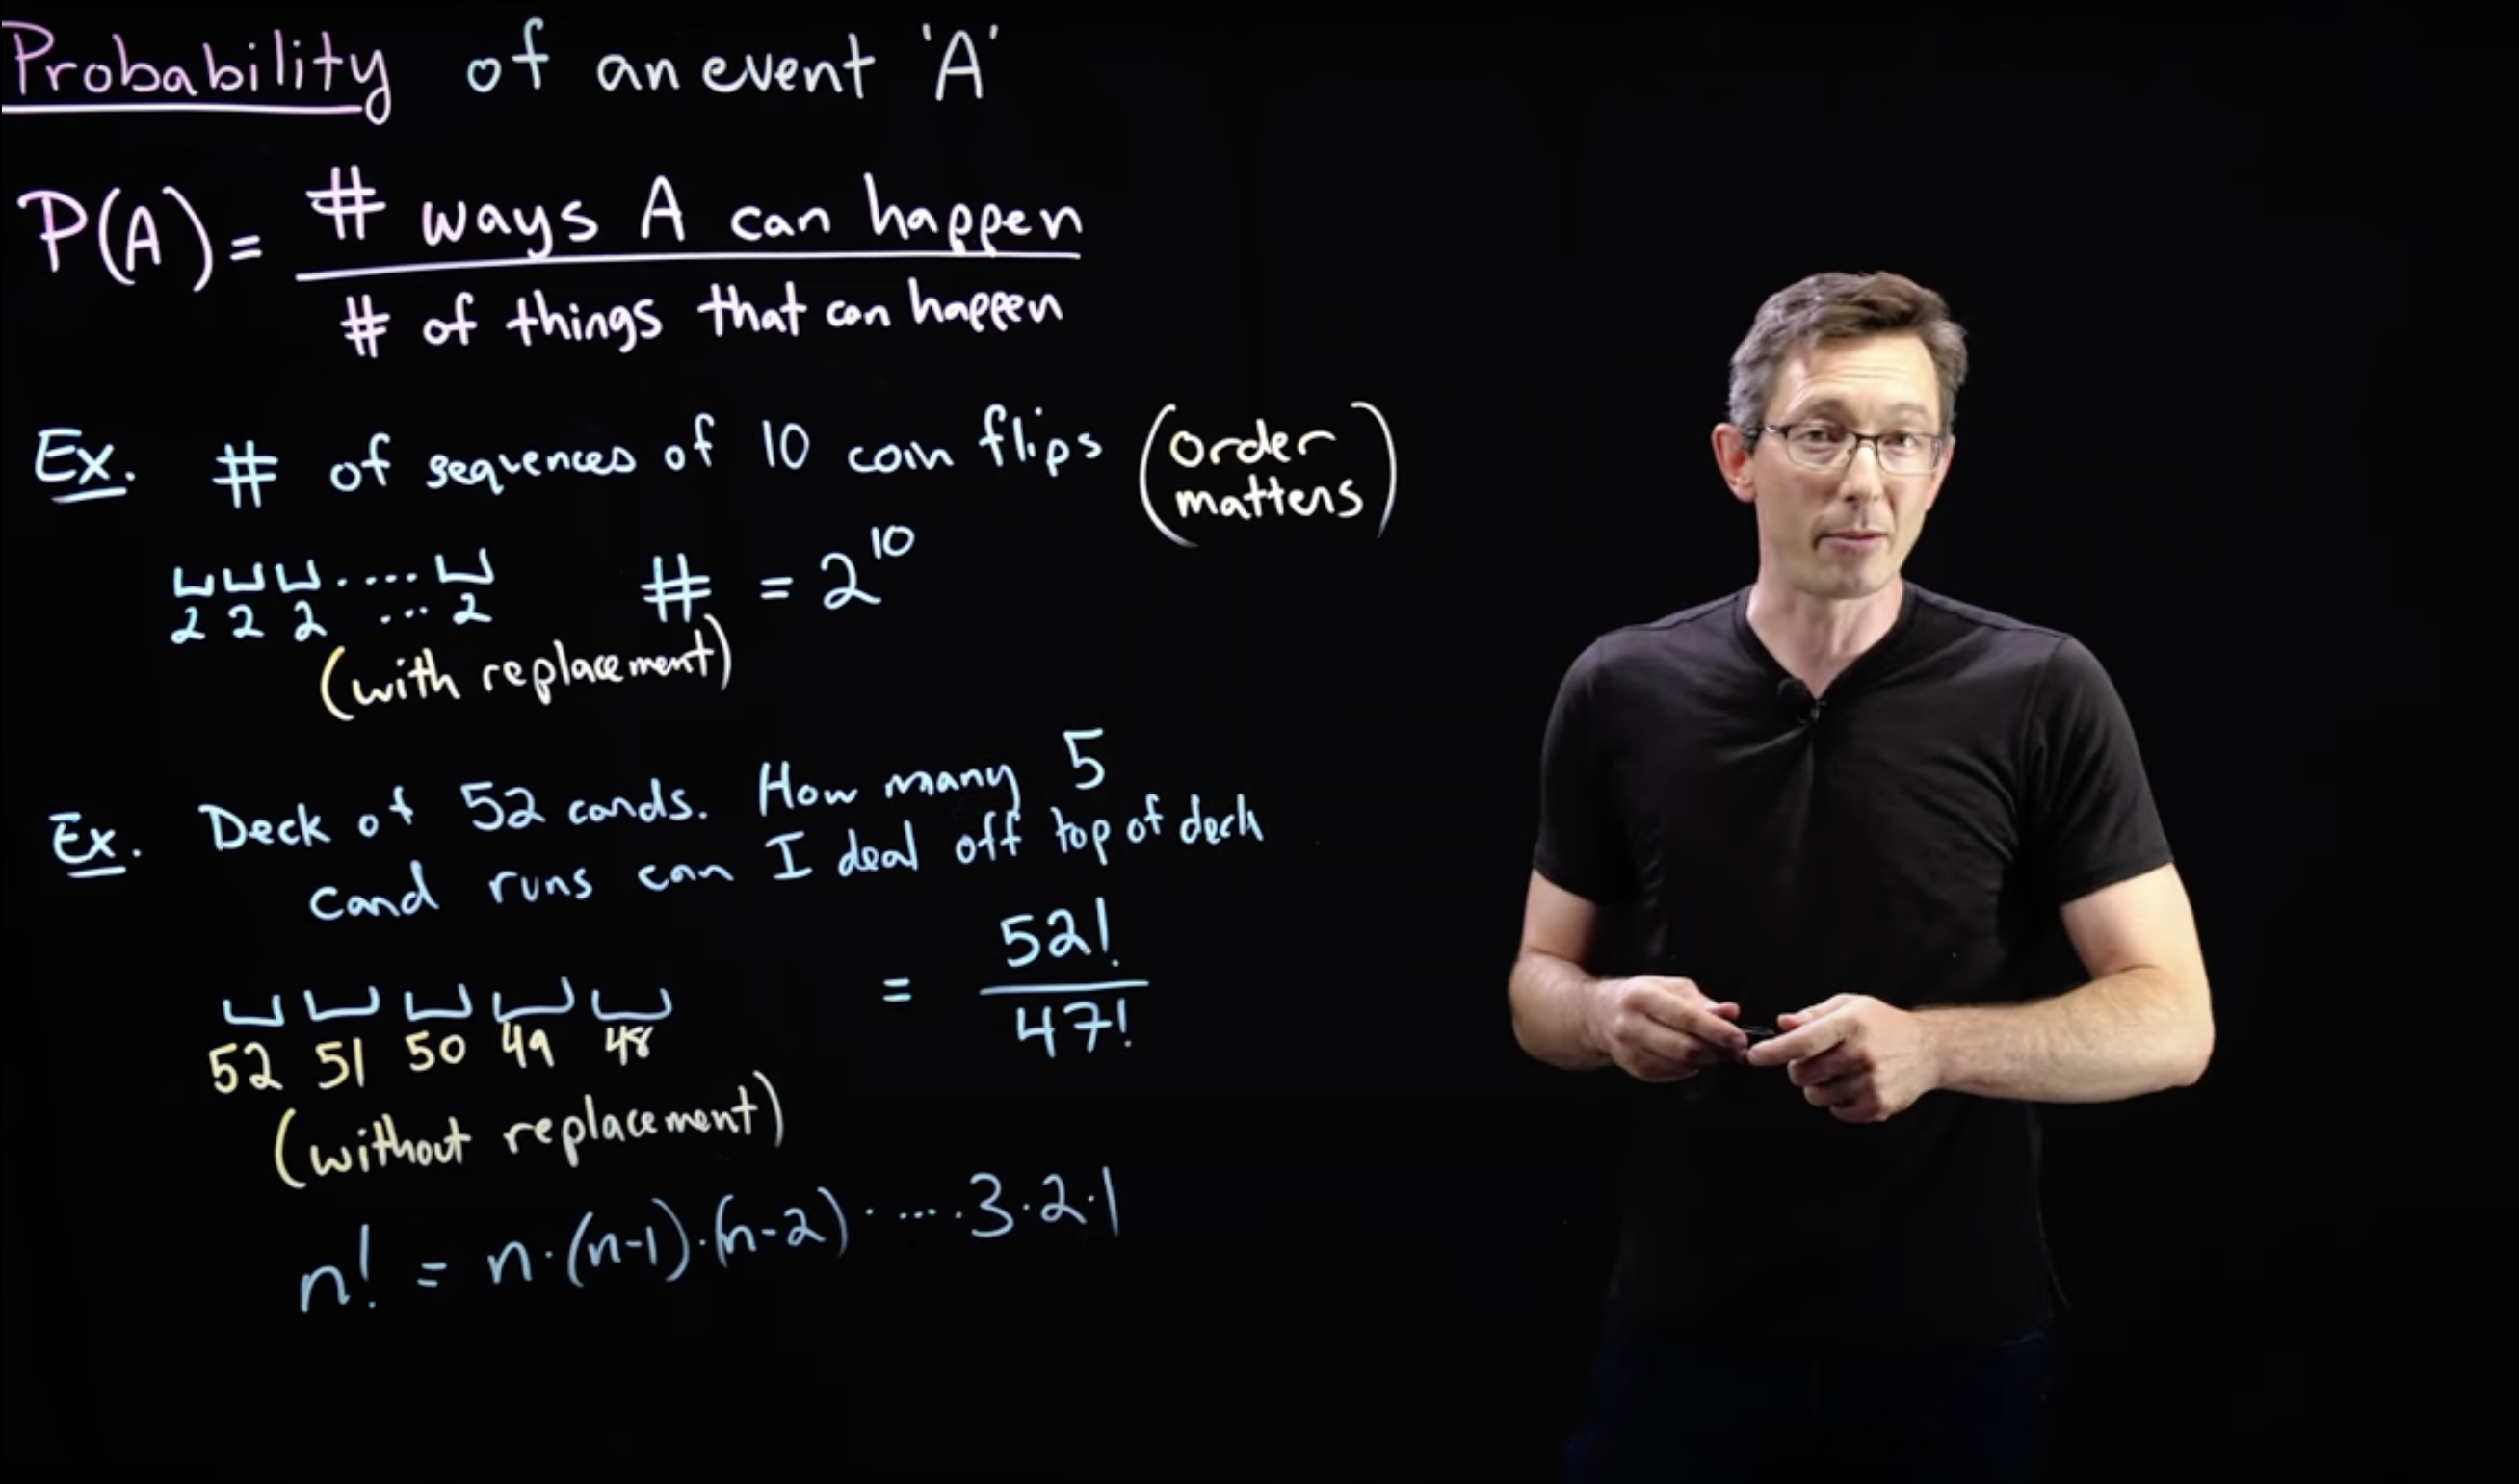 Probability of an event 'A'
P(A) = # ways A can happen / # of things that can happen
Ex. # of sequences of 10 coin flips (order matters)
⎵ ⎵ ⎵ .... ⎵
2 2 2 ... 2
# = 2^10
(with replacement)
Ex. Deck of 52 cards. How many 5
card runs can I deal off top of deck
⎵ ⎵ ⎵ ⎵ ⎵
52 51 50 49 48
= 52! / 47!
(without replacement)
n! = n·(n-1)·(n-2)· .... ·3·2·1